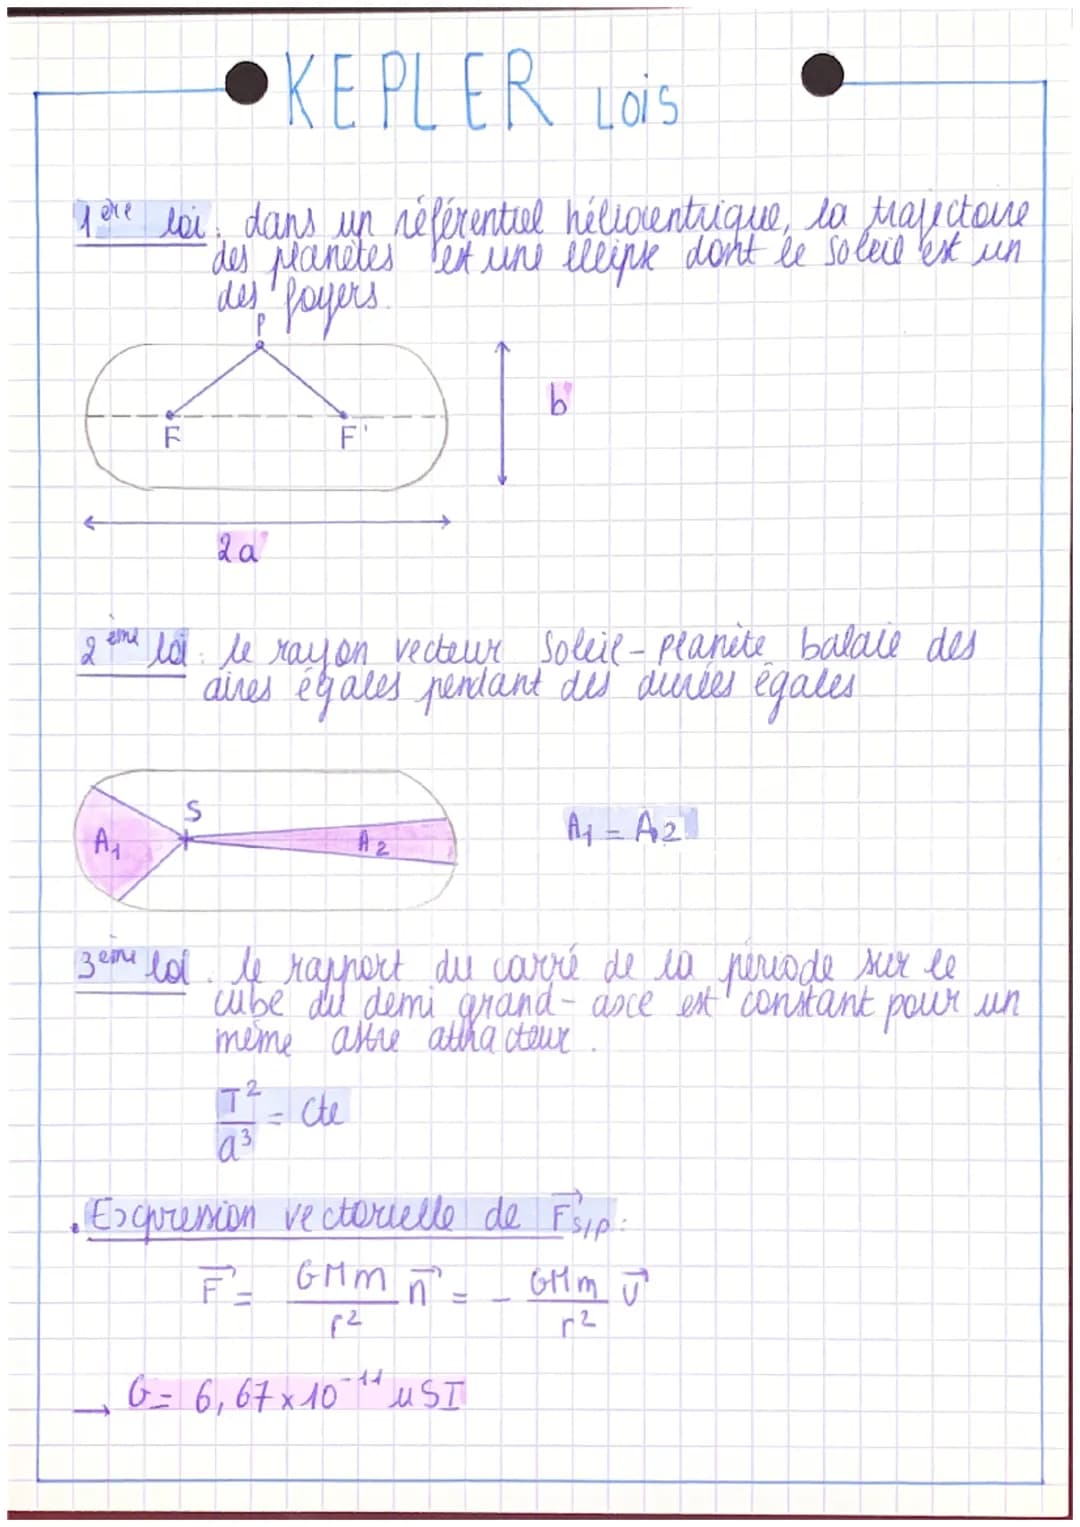 KEPLER LOIS
1ère loi : dans un référentiel héliocentrique, la trajectoire
des planètes est une ellipse dont le soleil est un
des foyers.
P
F F'
b
2a
2ème loi : le rayon vecteur Soleil-planète balaie des
aires égales pendant des durées égales
S
A1 A2
A1 = A2
3ème loi : le rapport du carré de la période sur le
cube du demi grand-axe est constant pour un
même astre attracteur.
T²/a³ = cte
. Expression vectorielle de F⃗s/p :
F⃗ = GMm/r² n⃗ = - GMm/r² U⃗
→ G = 6,67 x 10⁻¹¹ uSI